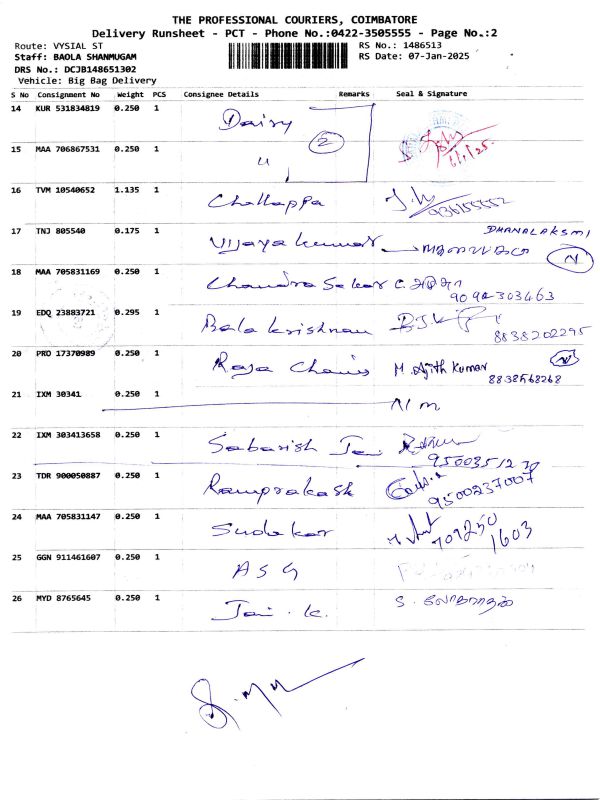 THE PROFESSIONAL COURIERS, COIMBATORE
Delivery Runsheet - PCT - Phone No.:0422-3505555 - Page No.:2
Route: VYSIAL ST
RS No.: 1486513
Staff: BAOLA SHANMUGAM
RS Date: 07-Jan-2025
DRS No.: DCJB148651302
Vehicle: Big Bag Delivery
S No Consignment No Weight PCS Consignee Details Remarks Seal & Signature
14 KUR 531834819 0.250 1 Daisy
2
15 MAA 706867531 0.250 1 "
16 TVM 10540652 1.135 1 Chellappa
17 TNJ 805540 0.175 1 Vijaya kumar DHANALAKSMI N
18 MAA 705831169 0.250 1 Chandra Sekar
9092303463
19 EDQ 23883721 0.295 1 Bala krishnan
8838202295
20 PRO 17370989 0.250 1 Raja M. Ajith Kumar N
8838568268
21 IXM 30341 0.250 1
22 IXM 303413658 0.250 1 Sabarish Jai
9500351270
23 TDR 900050887 0.250 1 Ramprakash
9500237007
24 MAA 705831147 0.250 1 Sudakar
709250
1603
25 GGN 911461607 0.250 1 ASG
26 MYD 8765645 0.250 1 Jai . K.